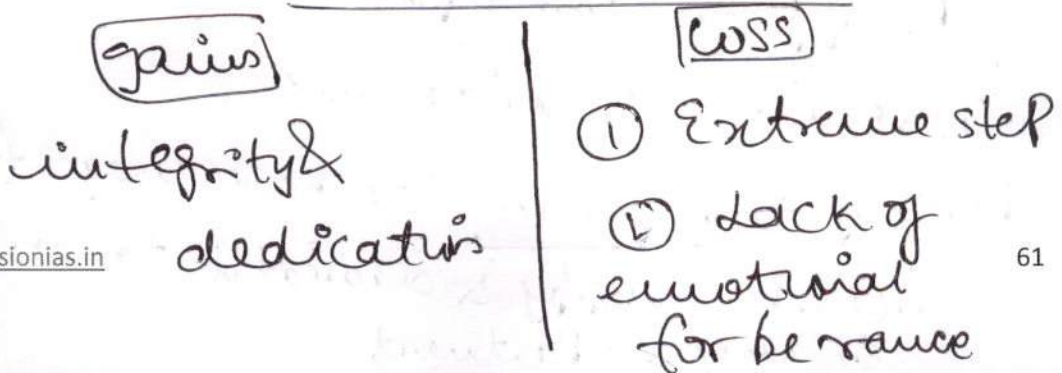 gains
integrity &
dedication
Loss
① Extreme step
② Lack of
emotional
forberance
sionias.in
61